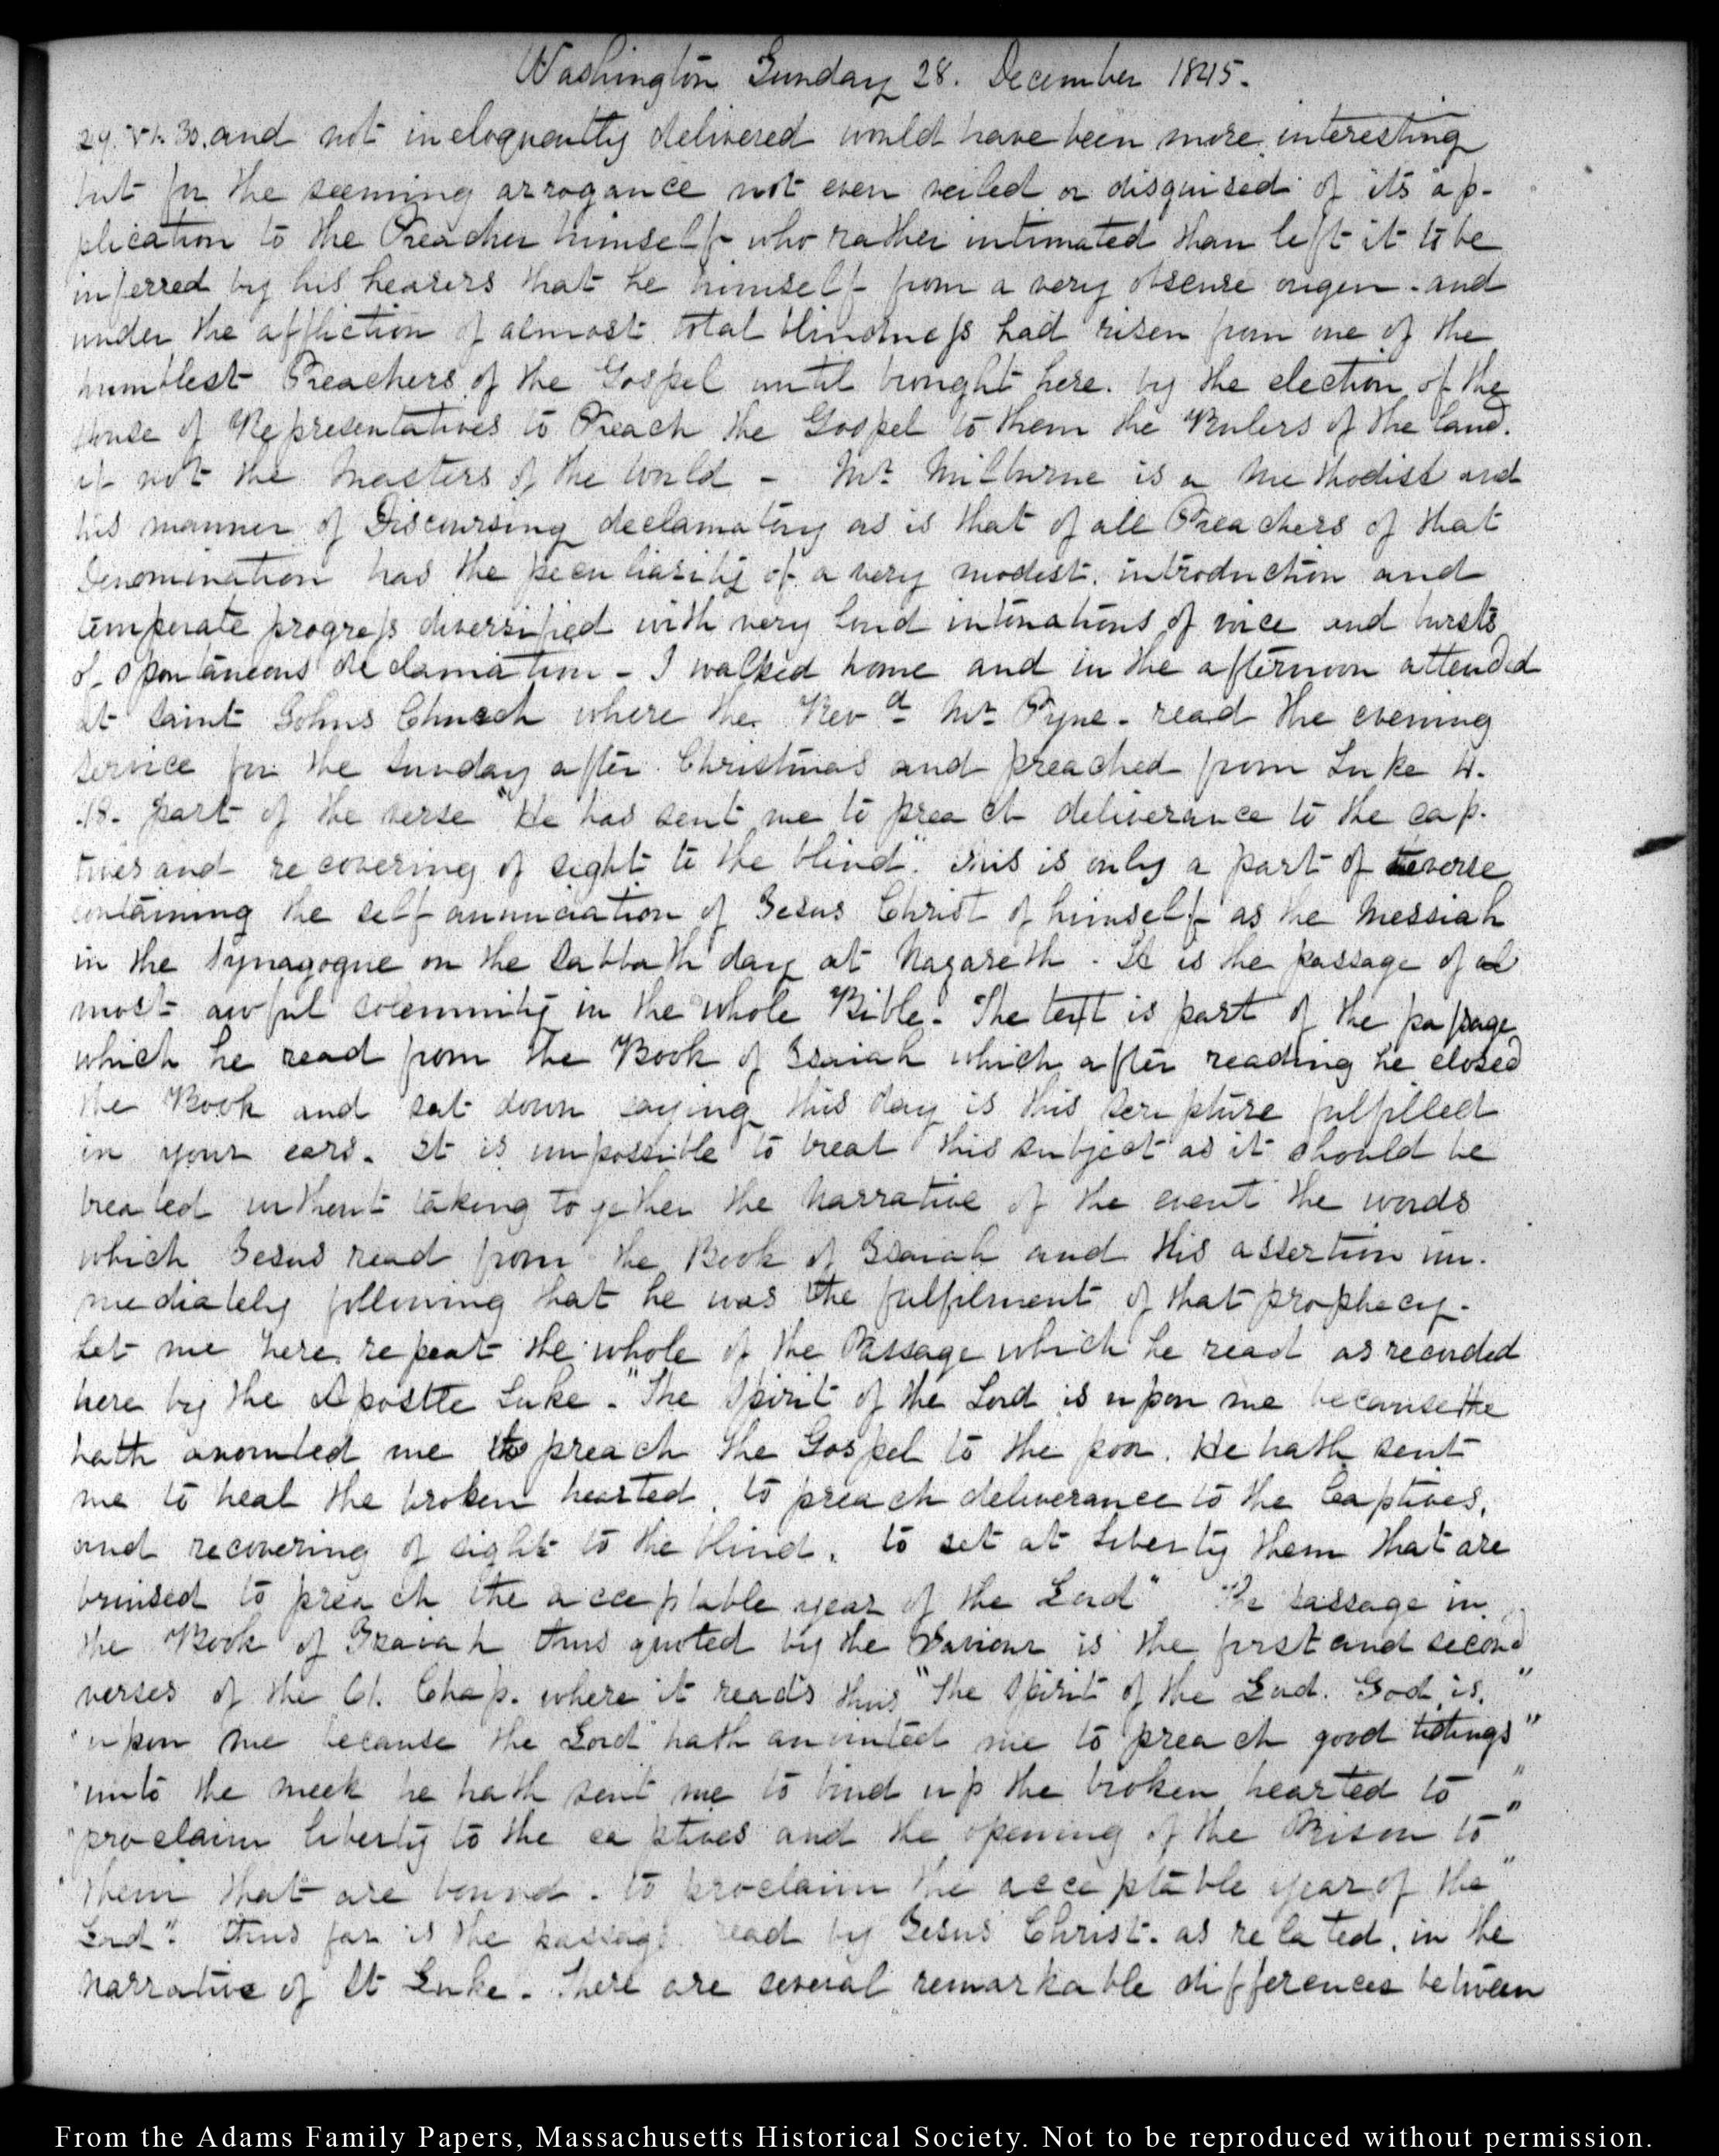 Washington Sunday 28. December 1845.
29. VI. 30. and not ineloquently delivered would have been more interesting
but for the seeming arrogance not even veiled or disguised of its ap-
plication to the Preacher himself who rather intimated than left it to be
inferred by his hearers that he himself from a very obscure origen - and
under the affliction of almost total blindness had risen from one of the
humblest Preachers of the Gospel until brought here by the election of the
House of Representatives to Preach the Gospel to them the Rulers of the land.
if not the Masters of the World - Mr Milburne is a Methodist and
his manner of Discoursing declamatory as is that of all Preachers of that
Denomination has the peculiarity of a very modest introduction and
temperate progress diversified with very loud intonations of voice and bursts
of spontaneous declamation - I walked home and in the afternoon attended
at Saint Johns Church where the Revd Mr Pyne - read the evening
service for the Sunday after Christmas and preached from Luke 4.
.18. part of the verse "He has sent me to preach deliverance to the cap-
tives and recovering of sight to the blind". This is only a part of verse
containing the self annunciation of Jesus Christ of himself as the Messiah
in the Synagogue on the Sabbath day at Nazareth - It is the passage of
most awful solemnity in the whole Bible - The text is part of the passage
which he read from the Book of Isaiah which after reading he closed
the Book and sat down saying this day is this scripture fulfilled
in your ears. It is impossible to treat this subject as it should be
treated without taking together the Narrative of the event the words
which Jesus read from the Book of Isaiah and this assertion im-
mediately following that he was the fulfilment of that prophecy -
Let me here repeat the whole of the Passage which he read as recorded
here by the Apostle Luke - "The Spirit of the Lord is upon me because He
hath anointed me to preach the Gospel to the poor. He hath sent
me to heal the broken hearted, to preach deliverance to the Captives,
and recovering of sight to the blind, to set at Liberty them that are
bruised to preach the acceptable year of the Lord" The passage in
the Book of Isaiah thus quoted by the Saviour is the first and second
verses of the 61. Chap. where it reads thus "The Spirit of the Lord God is"
"upon me because the Lord hath anointed me to preach good tidings"
"unto the meek he hath sent me to bind up the broken hearted to"
"proclaim liberty to the captives and the opening of the Prison to"
"them that are bound - to proclaim the acceptable year of the"
Lord". Thus far is the passage read by Jesus Christ - as related, in the
Narrative of St Luke - There are several remarkable differences between
From the Adams Family Papers, Massachusetts Historical Society. Not to be reproduced without permission.